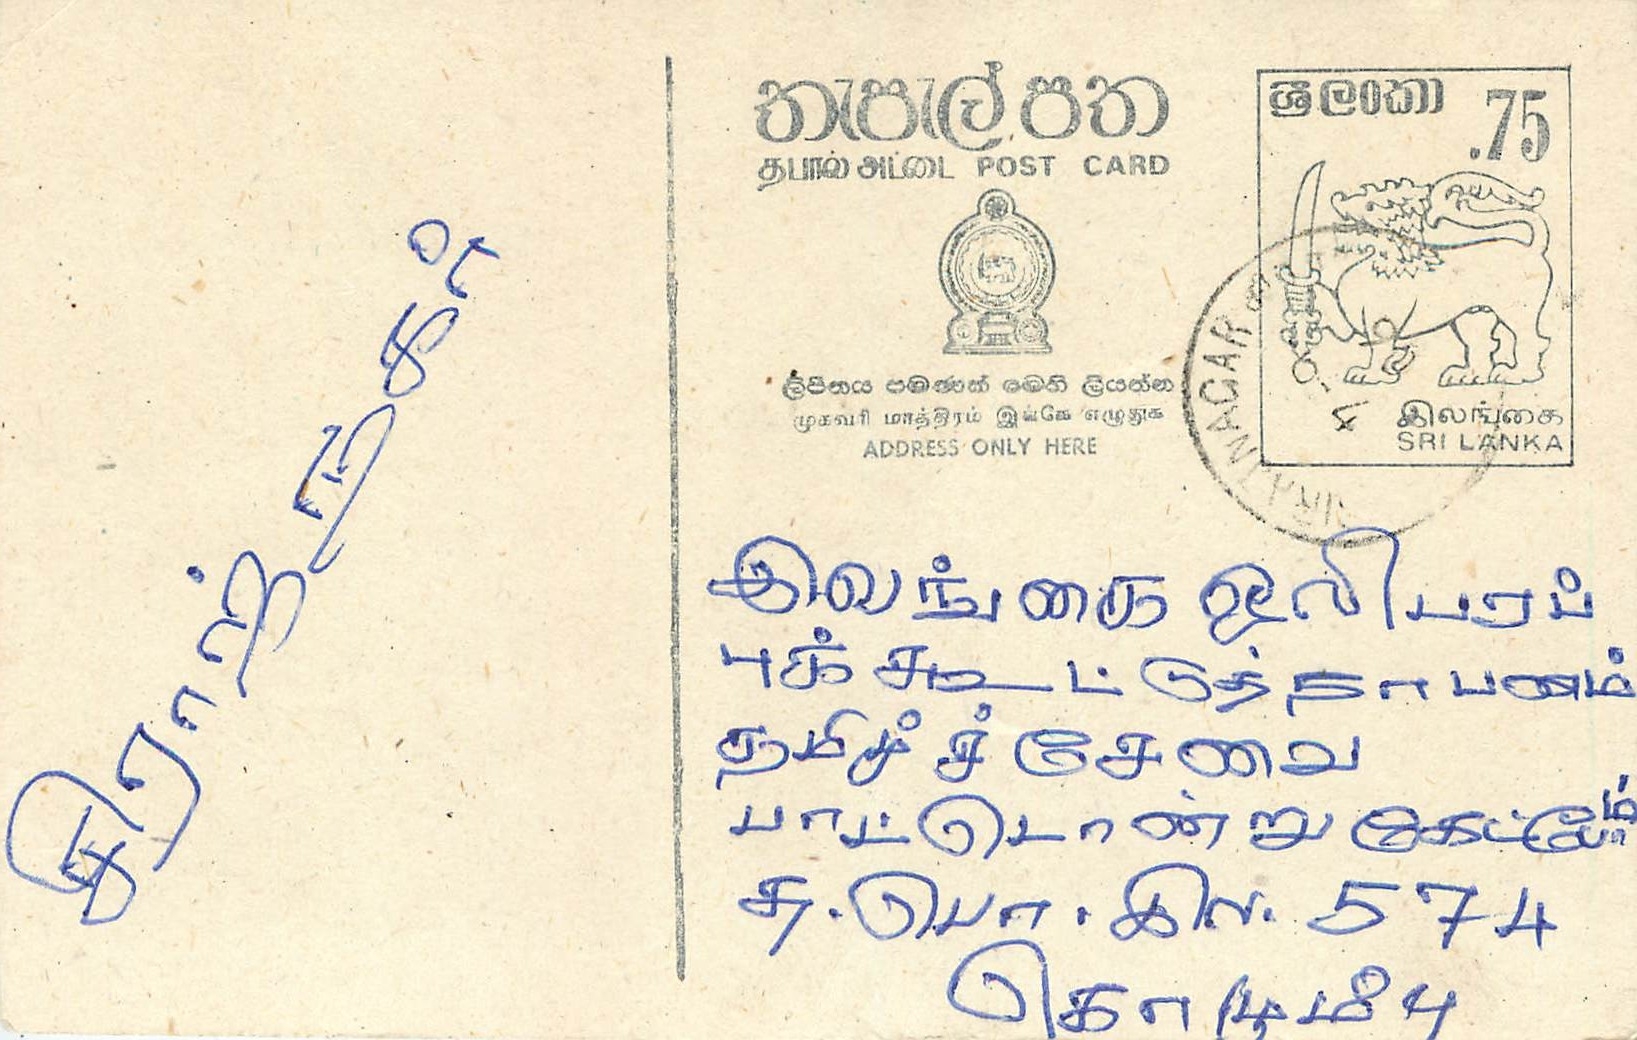 තැපැල් පත
தபால் அட்டை POST CARD
ශ්‍රී ලංකා .75
ලිපිනය පමණක් මෙහි ලියන්න
முகவரி மாத்திரம் இங்கே எழுதுக
ADDRESS ONLY HERE
இலங்கை
SRI LANKA
இலங்கை ஒலிபரப்
புக் கூட்டுத்தாபனம்
தமிழ்ச் சேவை
பாட்டொன்று கேட்போம்
த. பெ. இல. 574
கொழும்பு